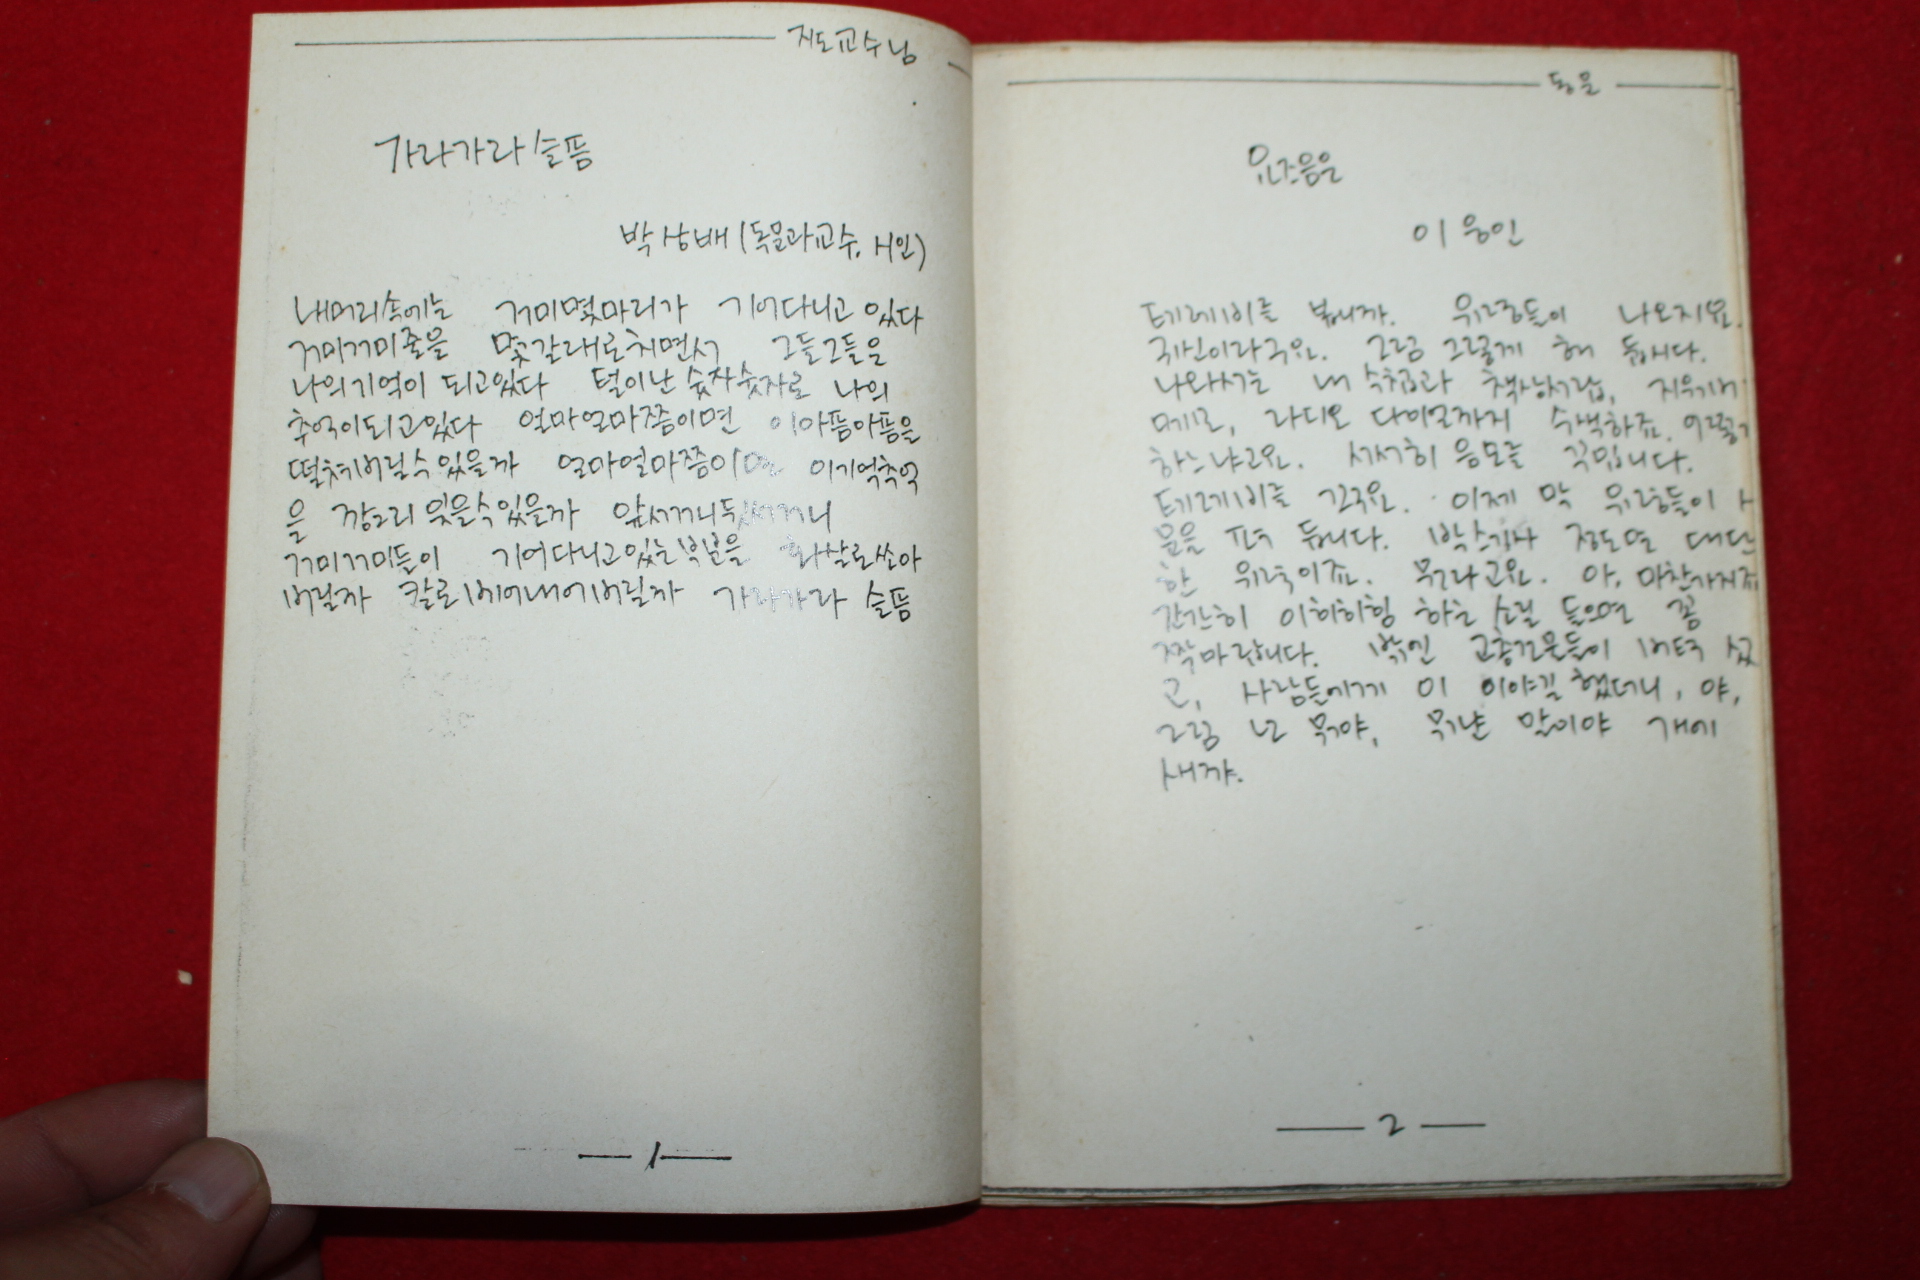 지도교수님
가라가라 슬픔
박상배 (독문과교수, 시인)
내머리속에는 거미몇마리가 기어다니고 있다
거미거미줄을 몇갈래로치면서 그들그들은
나의기억이 되고있다 털이난 숫자숫자로 나의
추억이되고있다 얼마얼마쯤이면 이아픔아픔을
떨쳐버릴수있을까 얼마얼마쯤이면 이기억추억
을 깡그리 잊을수있을까 앞서거니뒷서거니
거미거미들이 기어다니고있는부분을 화살로쏘아
버릴까 칼로베어내어버릴까 가라가라 슬픔
1
동문
요즈음은
이웅인
테레비를 봅니까. 위궁들이 나오지요.
귀신이라구요. 그럼 그렇게 해 둡시다.
나와서는 내 수첩과 책상서랍, 지우개
메모, 라디오 다이얼까지 수색하죠.
하느냐고요. 서서히 음모를 꾸밉니다.
테레비를 끄구요. 이제 막 들이
문을 펴 둡니다. 정도면 대단
한 이죠. 뭐라고요. 아, 마찬가지죠
간간히 이히히힝 하는 소릴 들으면 꽁
짝마랍니다. 밖엔 고층건물들이 버텨 섰
고, 사람들에게 이 이야길 했더니, 야,
그럼 넌 뭐야, 뭐냔 말이야 개에
새꺄.
2